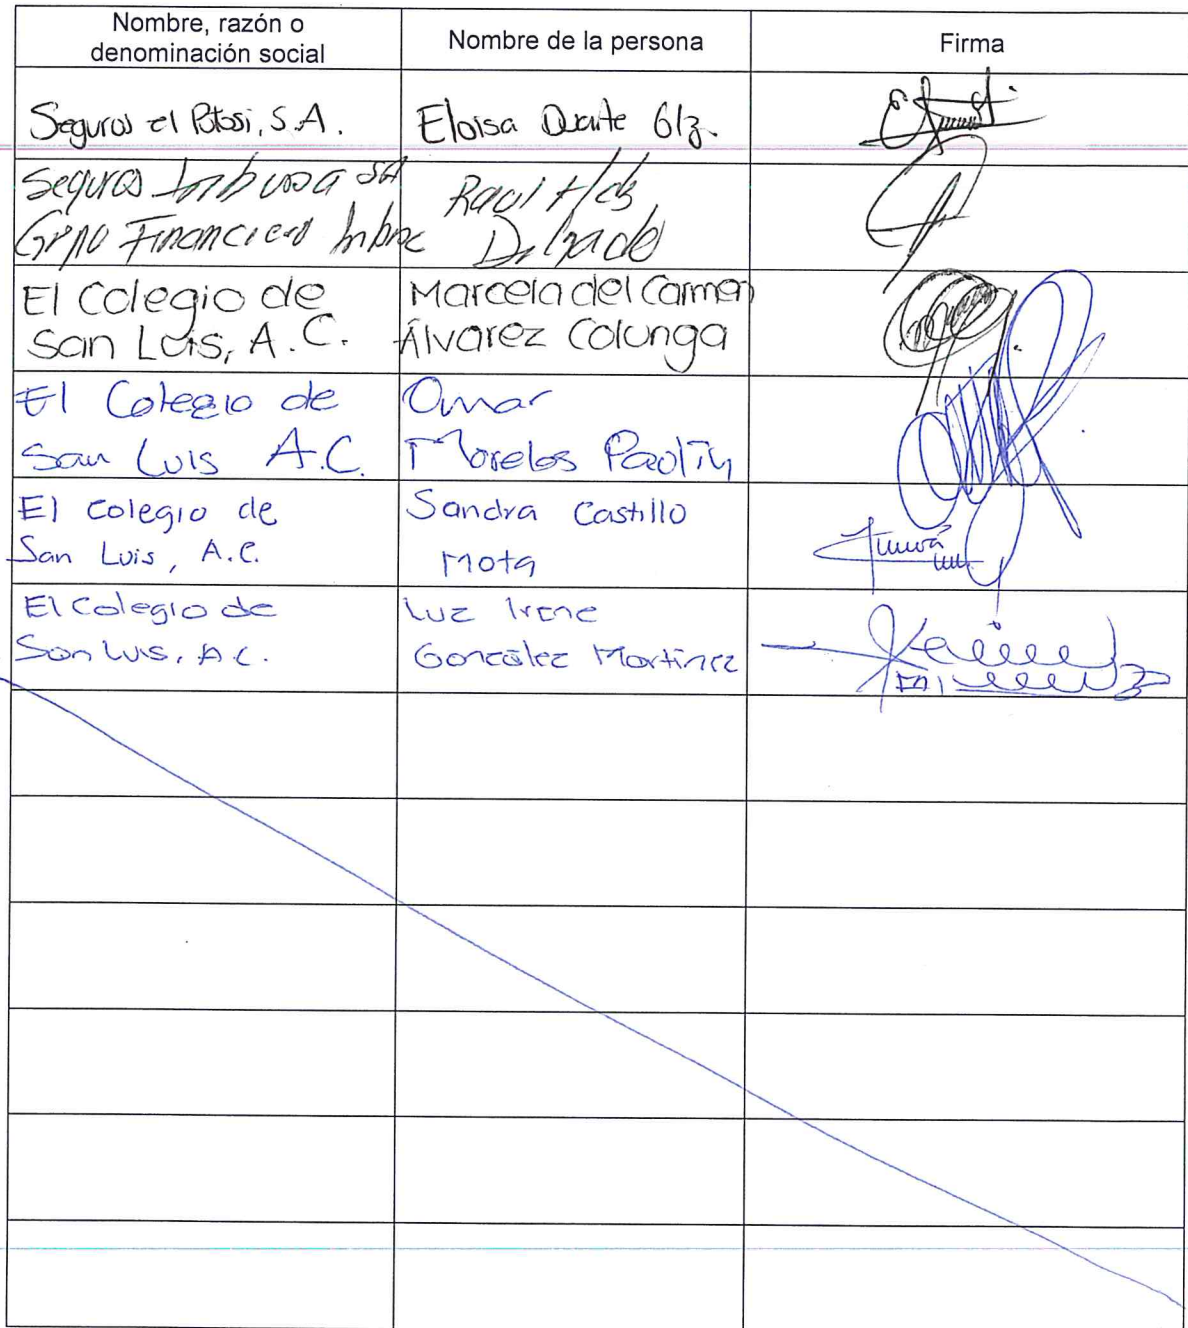 Nombre, razón o
denominación social
Nombre de la persona
Firma
Seguros el Potosi, S.A.
Eloisa Duarte Glz.
Seguros Inbursa SA
Grupo Financiero Inbursa
Raul Hdz
Delgado
El Colegio de
San Luis, A.C.
Marcela del Carmen
Álvarez Colunga
El Colegio de
San Luis A.C.
Omar
Morelos Paolín
El Colegio de
San Luis, A.C.
Sandra Castillo
Mota
El Colegio de
San Luis, A.C.
Luz Irene
González Martínez